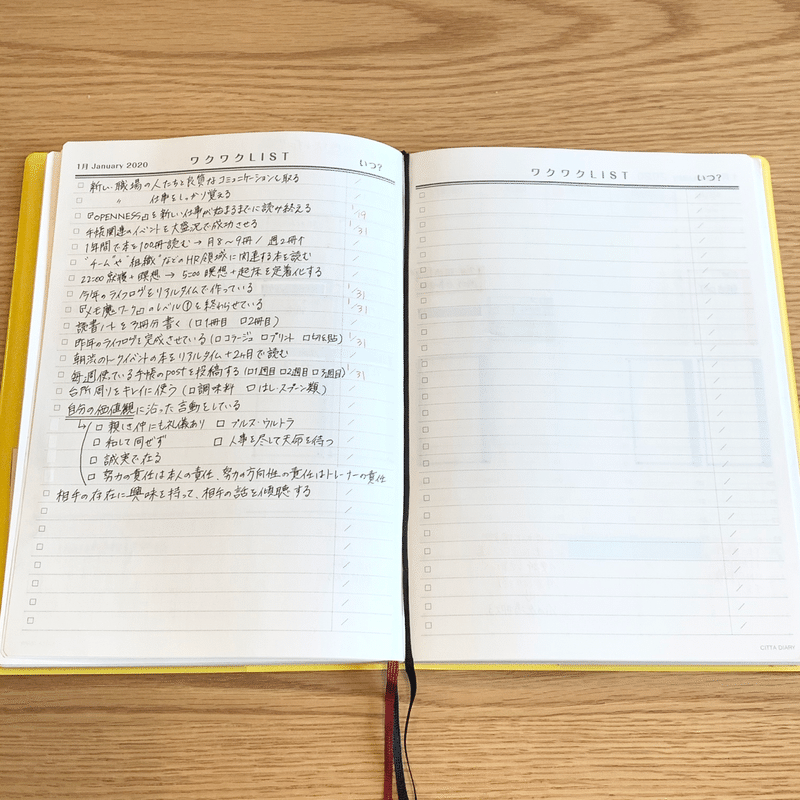 1月 January 2020 ワクワクLIST いつ?
□ 新しい職場の人たちと良質なコミュニケーションし取る
□ 〃 仕事をしっかり覚える
□ 『OPENNESS』を新しい仕事が始まるまでに読み終える 1/19
□ 手帳関連のイベントを大盛況で成功させる 1/31
□ 1年間で本を100冊読む → 月8〜9冊 / 週2冊↑
□ "チーム"や"組織"などのHR領域に関連する本を読む
□ 22:00就寝+瞑想 → 5:00瞑想+起床を定着化する
□ 今年のライフログをリアルタイムで作っている 1/31
□ 『メモ魔ワーク』のレベル①を終わらせている 1/31
□ 読書ノートを3冊分書く (□1冊目 □2冊目)
□ 昨年のライフログを完成させている (□コラージュ □プリント □切&貼) 1/31
□ 朝渋のトークイベントの本をリアルタイム+2ヶ月で読む
□ 毎週使っている手帳のpostを投稿する (□1週目 □2週目 □3週目) 1/31
□ 台所周りをキレイに使う (□調味料 □はし・スプーン類)
□ 自分の価値観に沿った言動をしている
□ 親しき仲にも礼儀あり □ プルス・ウルトラ
□ 和して同ぜず □ 人事を尽して天命を待つ
□ 誠実で在る
□ 努力の責任は本人の責任、努力の方向性の責任はトレーナーの責任
□ 相手の存在に興味を持って、相手の話を傾聴する
ワクワクLIST いつ?
CITTA DIARY